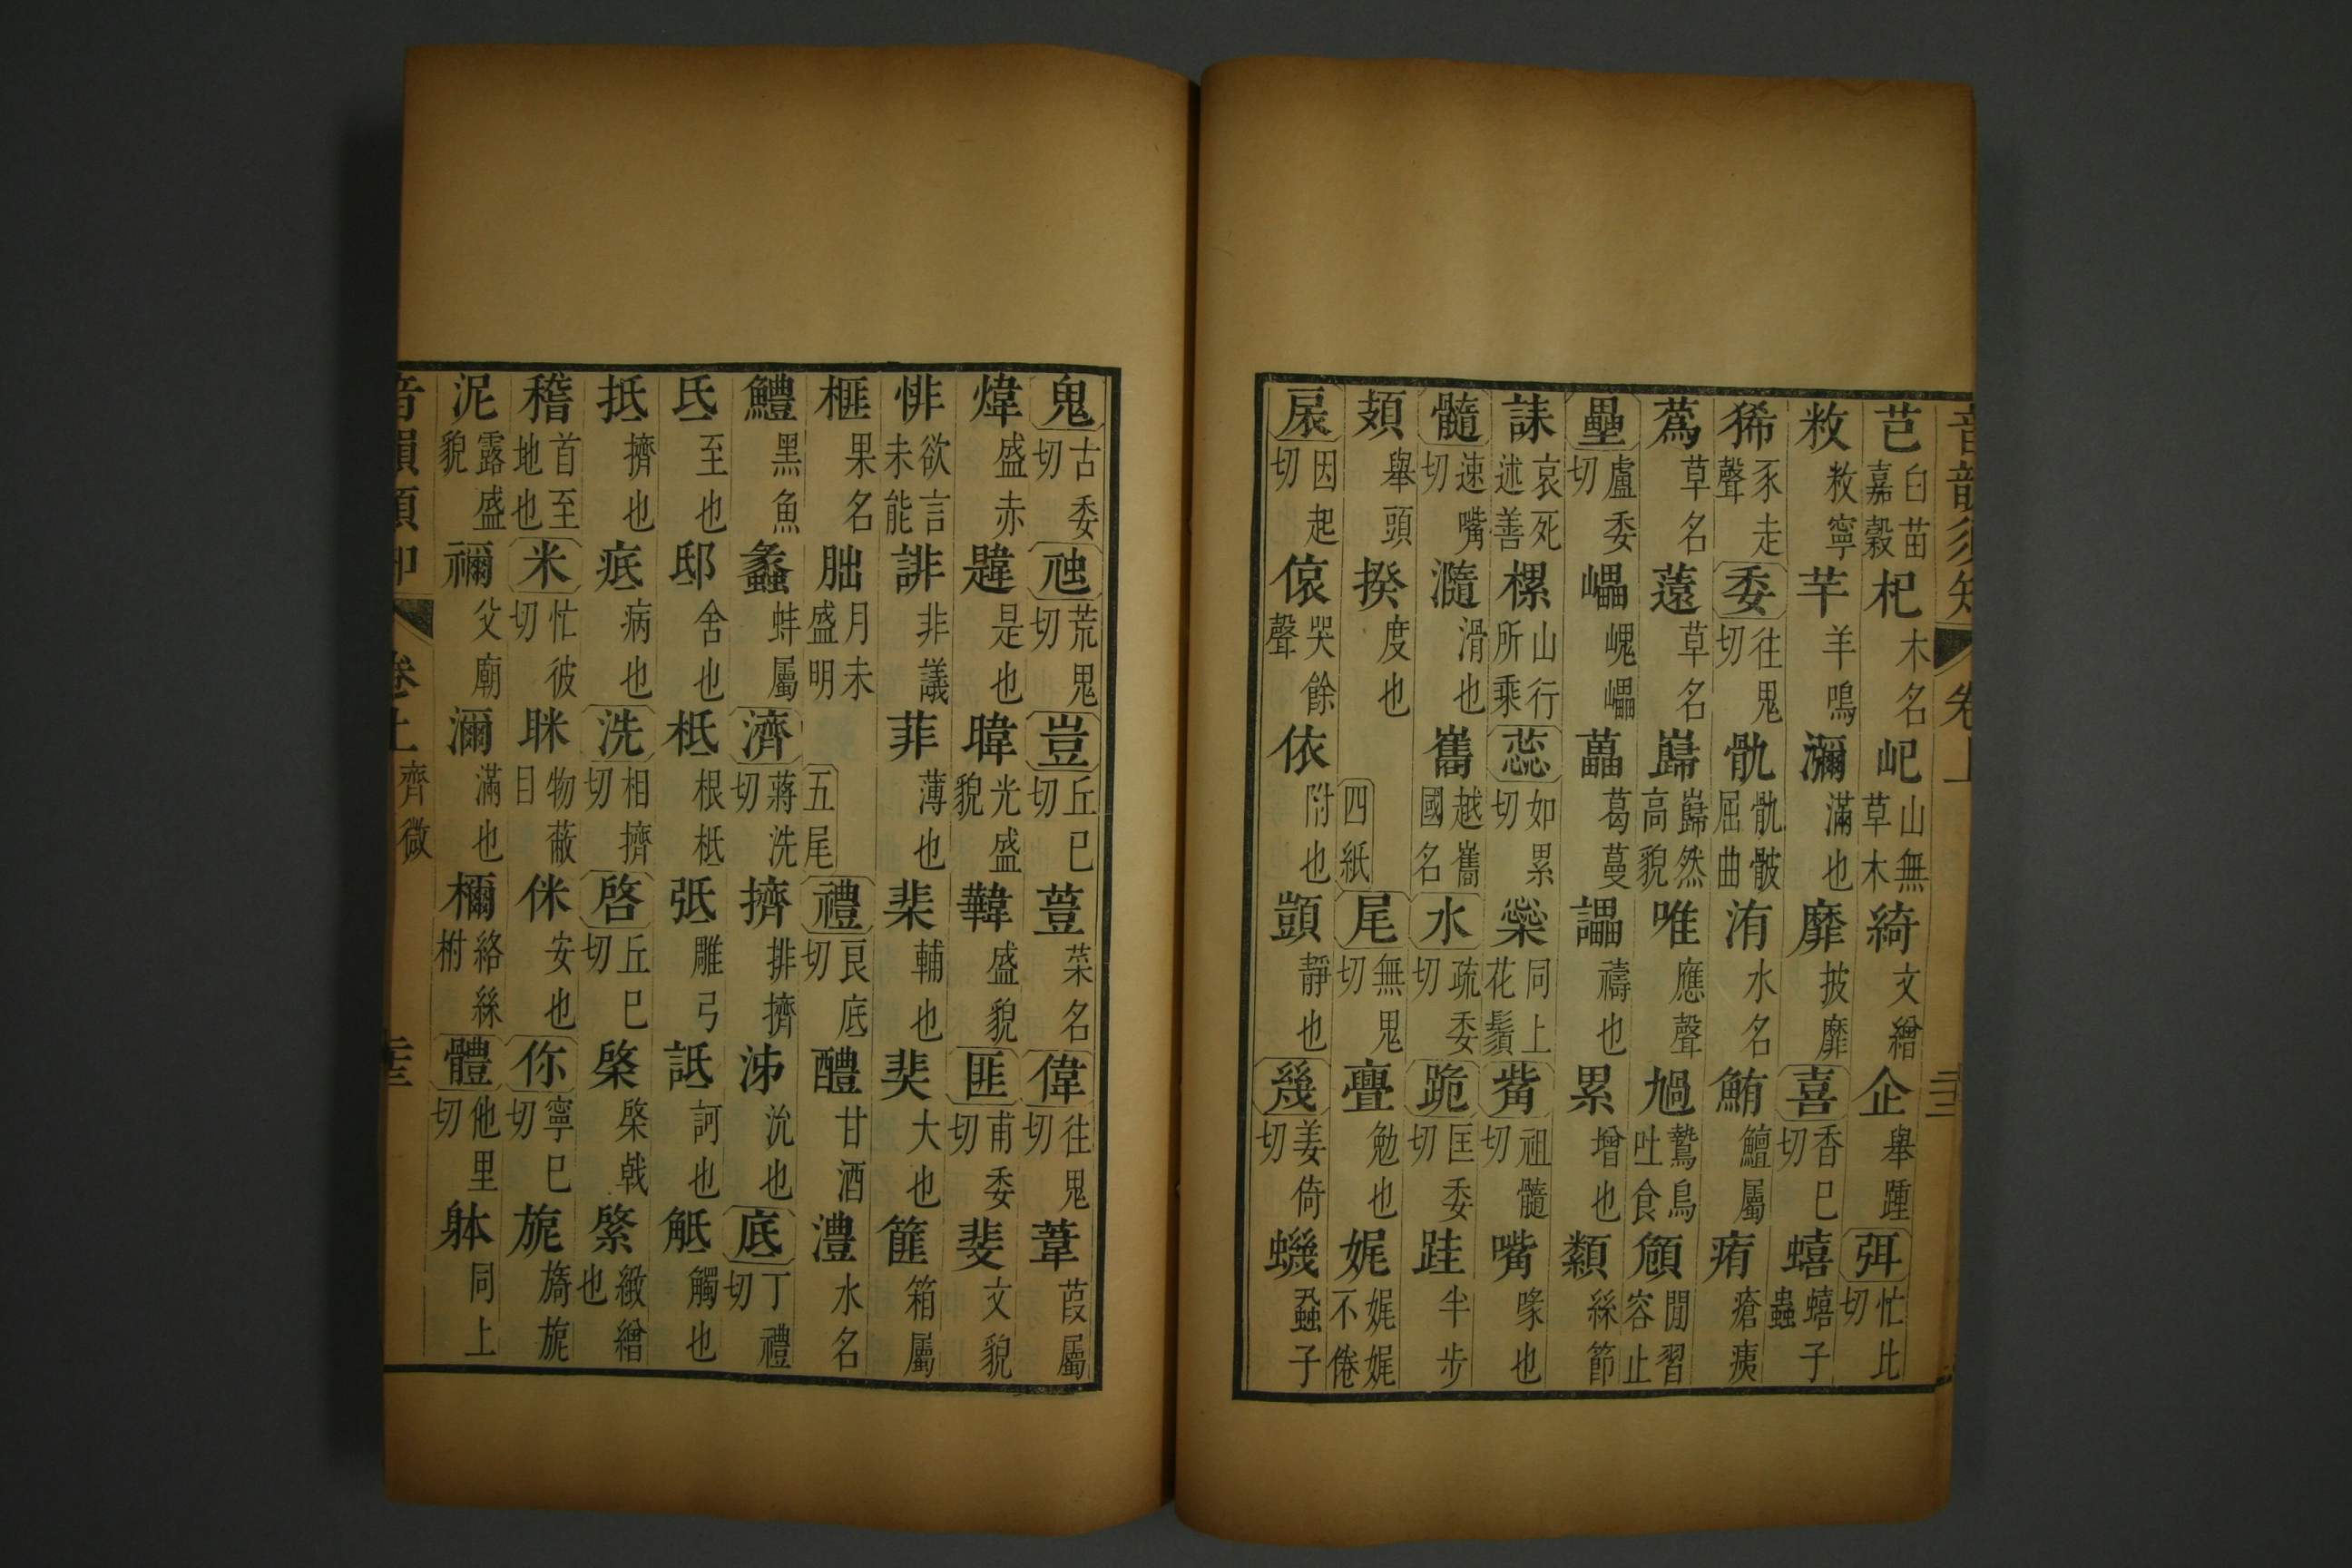 音韻須知 卷上
芑 白苗嘉穀 杞 木名 屺 山無草木 綺 文繒 企 舉踵 弭 忙比切
敉 敉寧 羋 羊鳴 瀰 滿也 靡 披靡 喜 香巳切 蟢 蟢子蟲
豨 豕走聲 委 往鬼切 骩 骩骳屈曲 洧 水名 鮪 鱣屬 痏 瘡痍
蔿 草名 薳 草名 巋 巋然高貌 唯 應聲 鷙鳥吐食 頠 閒習容止
壘 盧委切 㠥 㟴㠥 藟 葛蔓 讄 禱也 累 增也 纇 絲節
誄 哀死述善 樏 山行所乘 蕊 如累切 橤 同上花鬚 觜 祖髓切 嘴 喙也
髓 速嘴切 瀡 滑也 巂 越巂國名 水 疏委切 跪 匡委切 跬 半步
頍 舉頭 揆 度也 四紙 尾 無鬼切 亹 勉也 娓 娓娓不倦
扆 因起切 偯 哭餘聲 依 附也 顗 靜也 幾 姜倚切 蟣 蝨子
鬼 古委切 虺 荒鬼切 豈 丘巳切 荳 菜名 偉 往鬼切 葦 葭屬
煒 盛赤 韙 是也 暐 光盛貌 韡 盛貌 匪 甫委切 斐 文貌
悱 欲言未能 誹 非議 菲 薄也 棐 輔也 奜 大也 篚 箱屬
榧 果名 朏 月未盛明 五尾 禮 良底切 醴 甘酒 澧 水名
鱧 黑魚 蠡 蚌屬 濟 蔣洗切 擠 排擠 泲 沇也 底 丁禮切
氐 至也 邸 舍也 柢 根柢 弤 雕弓 詆 訶也 觝 觸也
抵 擠也 疧 病也 洗 相擠切 啓 丘巳切 棨 棨戟 綮 緻繒也
稽 首至地也 米 忙彼切 眯 物蔽目 侎 安也 你 寧巳切 旎 旖旎
泥 露盛貌 禰 父廟 瀰 滿也 檷 絡絲柎 體 他里切 躰 同上
音韻須知 卷上 齊微